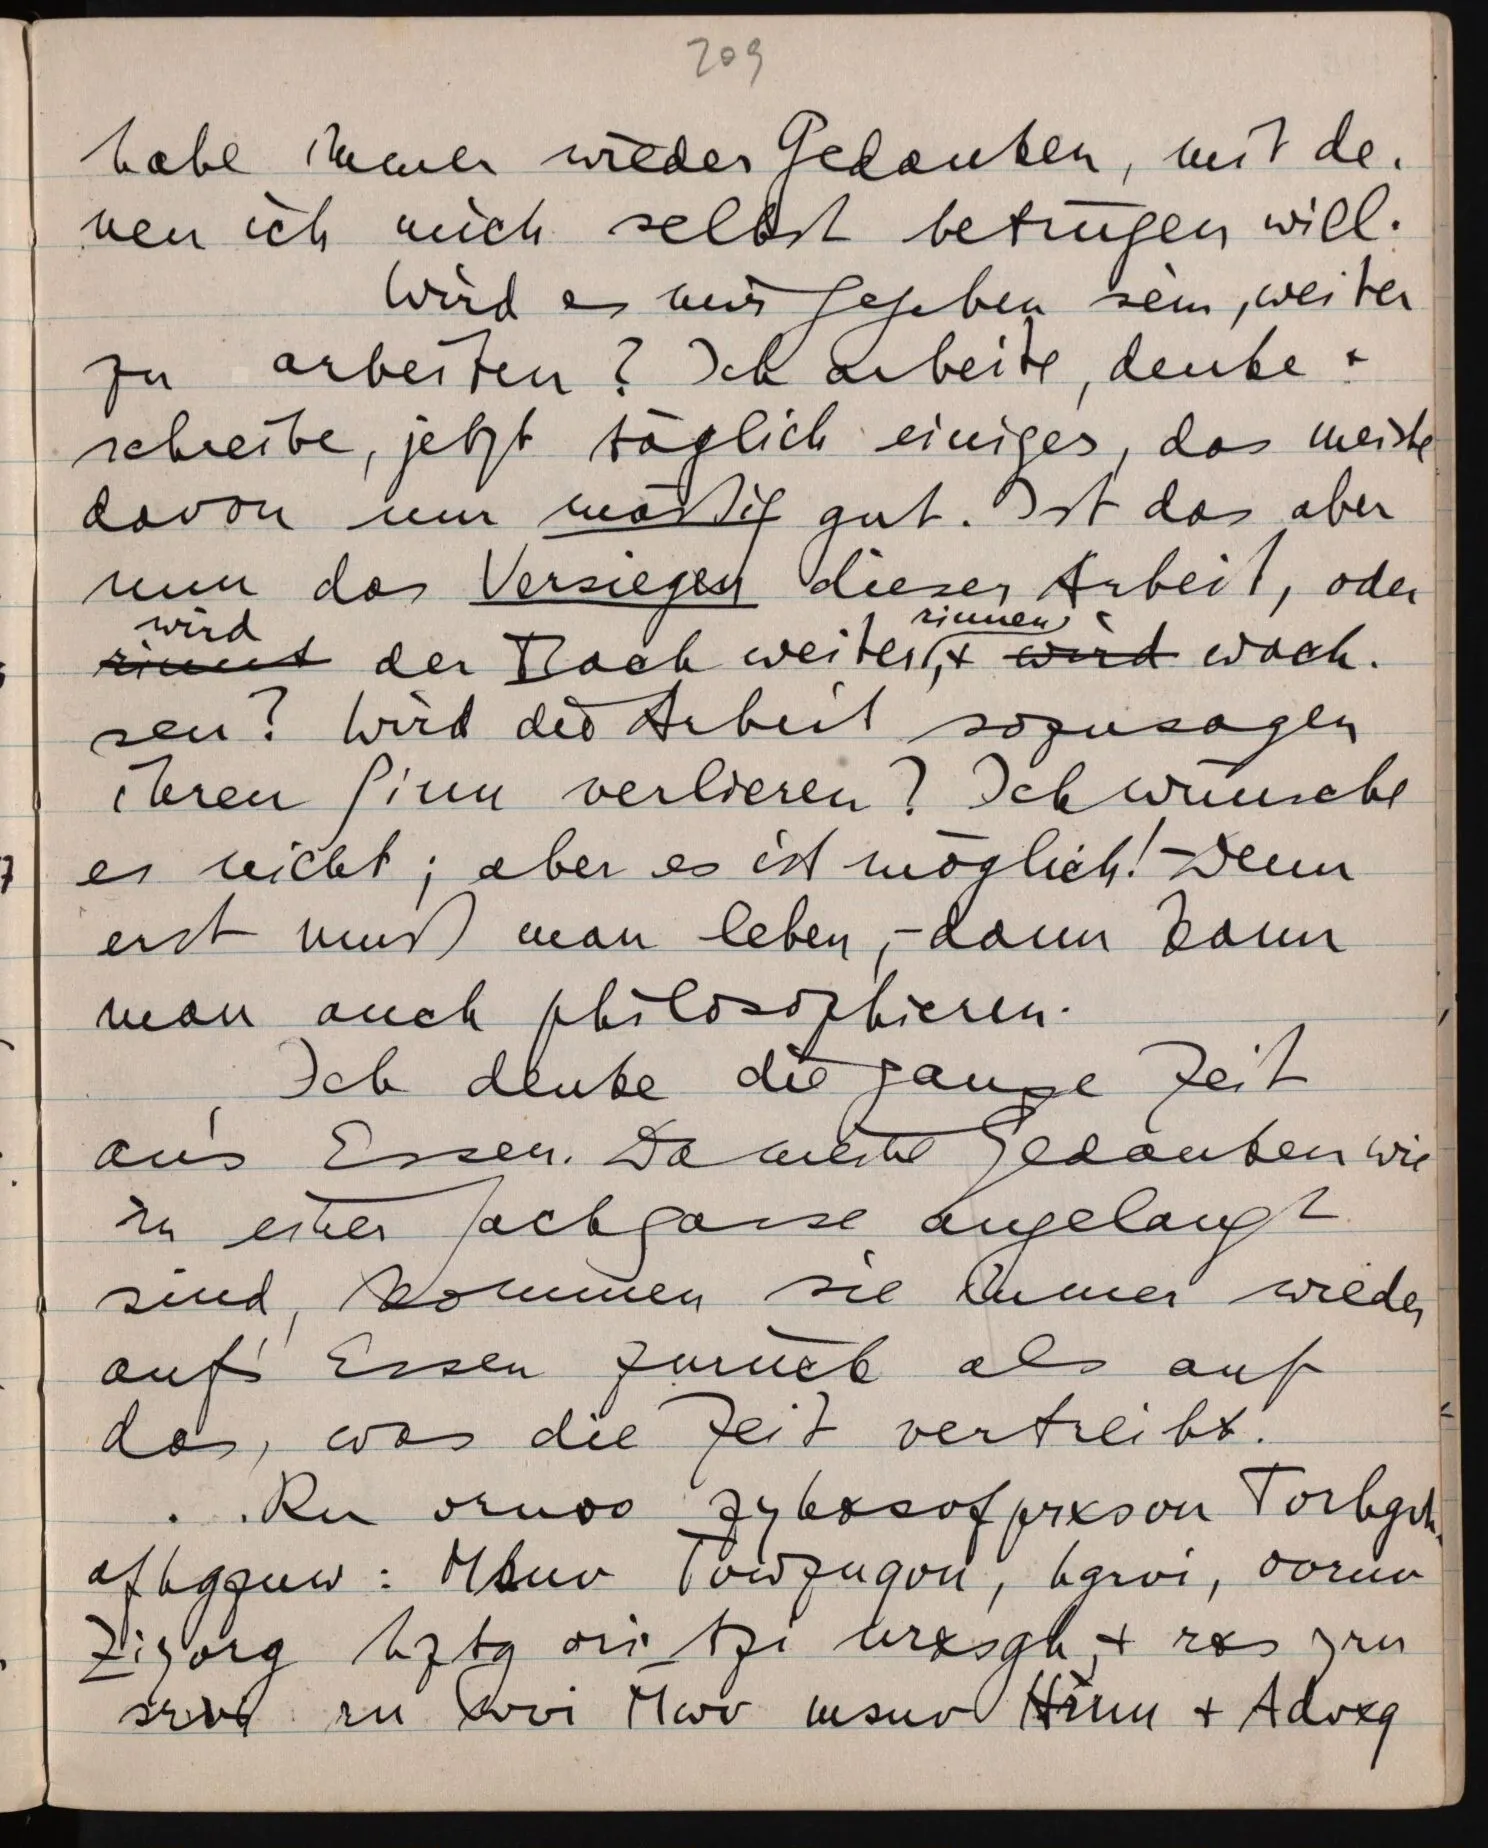 209
habe immer wieder Gedanken, mit de-
nen ich mich selbst betrügen will.
Wird es mir gegeben sein, weiter
zu arbeiten? Ich arbeite, denke +
schreibe, jetzt täglich einiges, das meiste
davon nur mäßig gut. Ist das aber
nun das Versiegen dieser Arbeit, oder
wird rinnen
rinnt der Bach weiter, + wird wach-
sen? Wird die Arbeit sozusagen
ihren Sinn verlieren? Ich wünsche
es nicht; aber es ist möglich! – Denn
erst muß man leben, – dann kann
man auch philosophieren.
Ich denke die ganze Zeit
an's Essen. Da meine Gedanken wie
in einer Sackgasse angelangt
sind, kommen sie immer wieder
auf's Essen zurück als auf
das, was die Zeit vertreibt.
Rn ornoo
: , hgrvi, oornv
hztg ori tzi + rxs
rn + Advxg